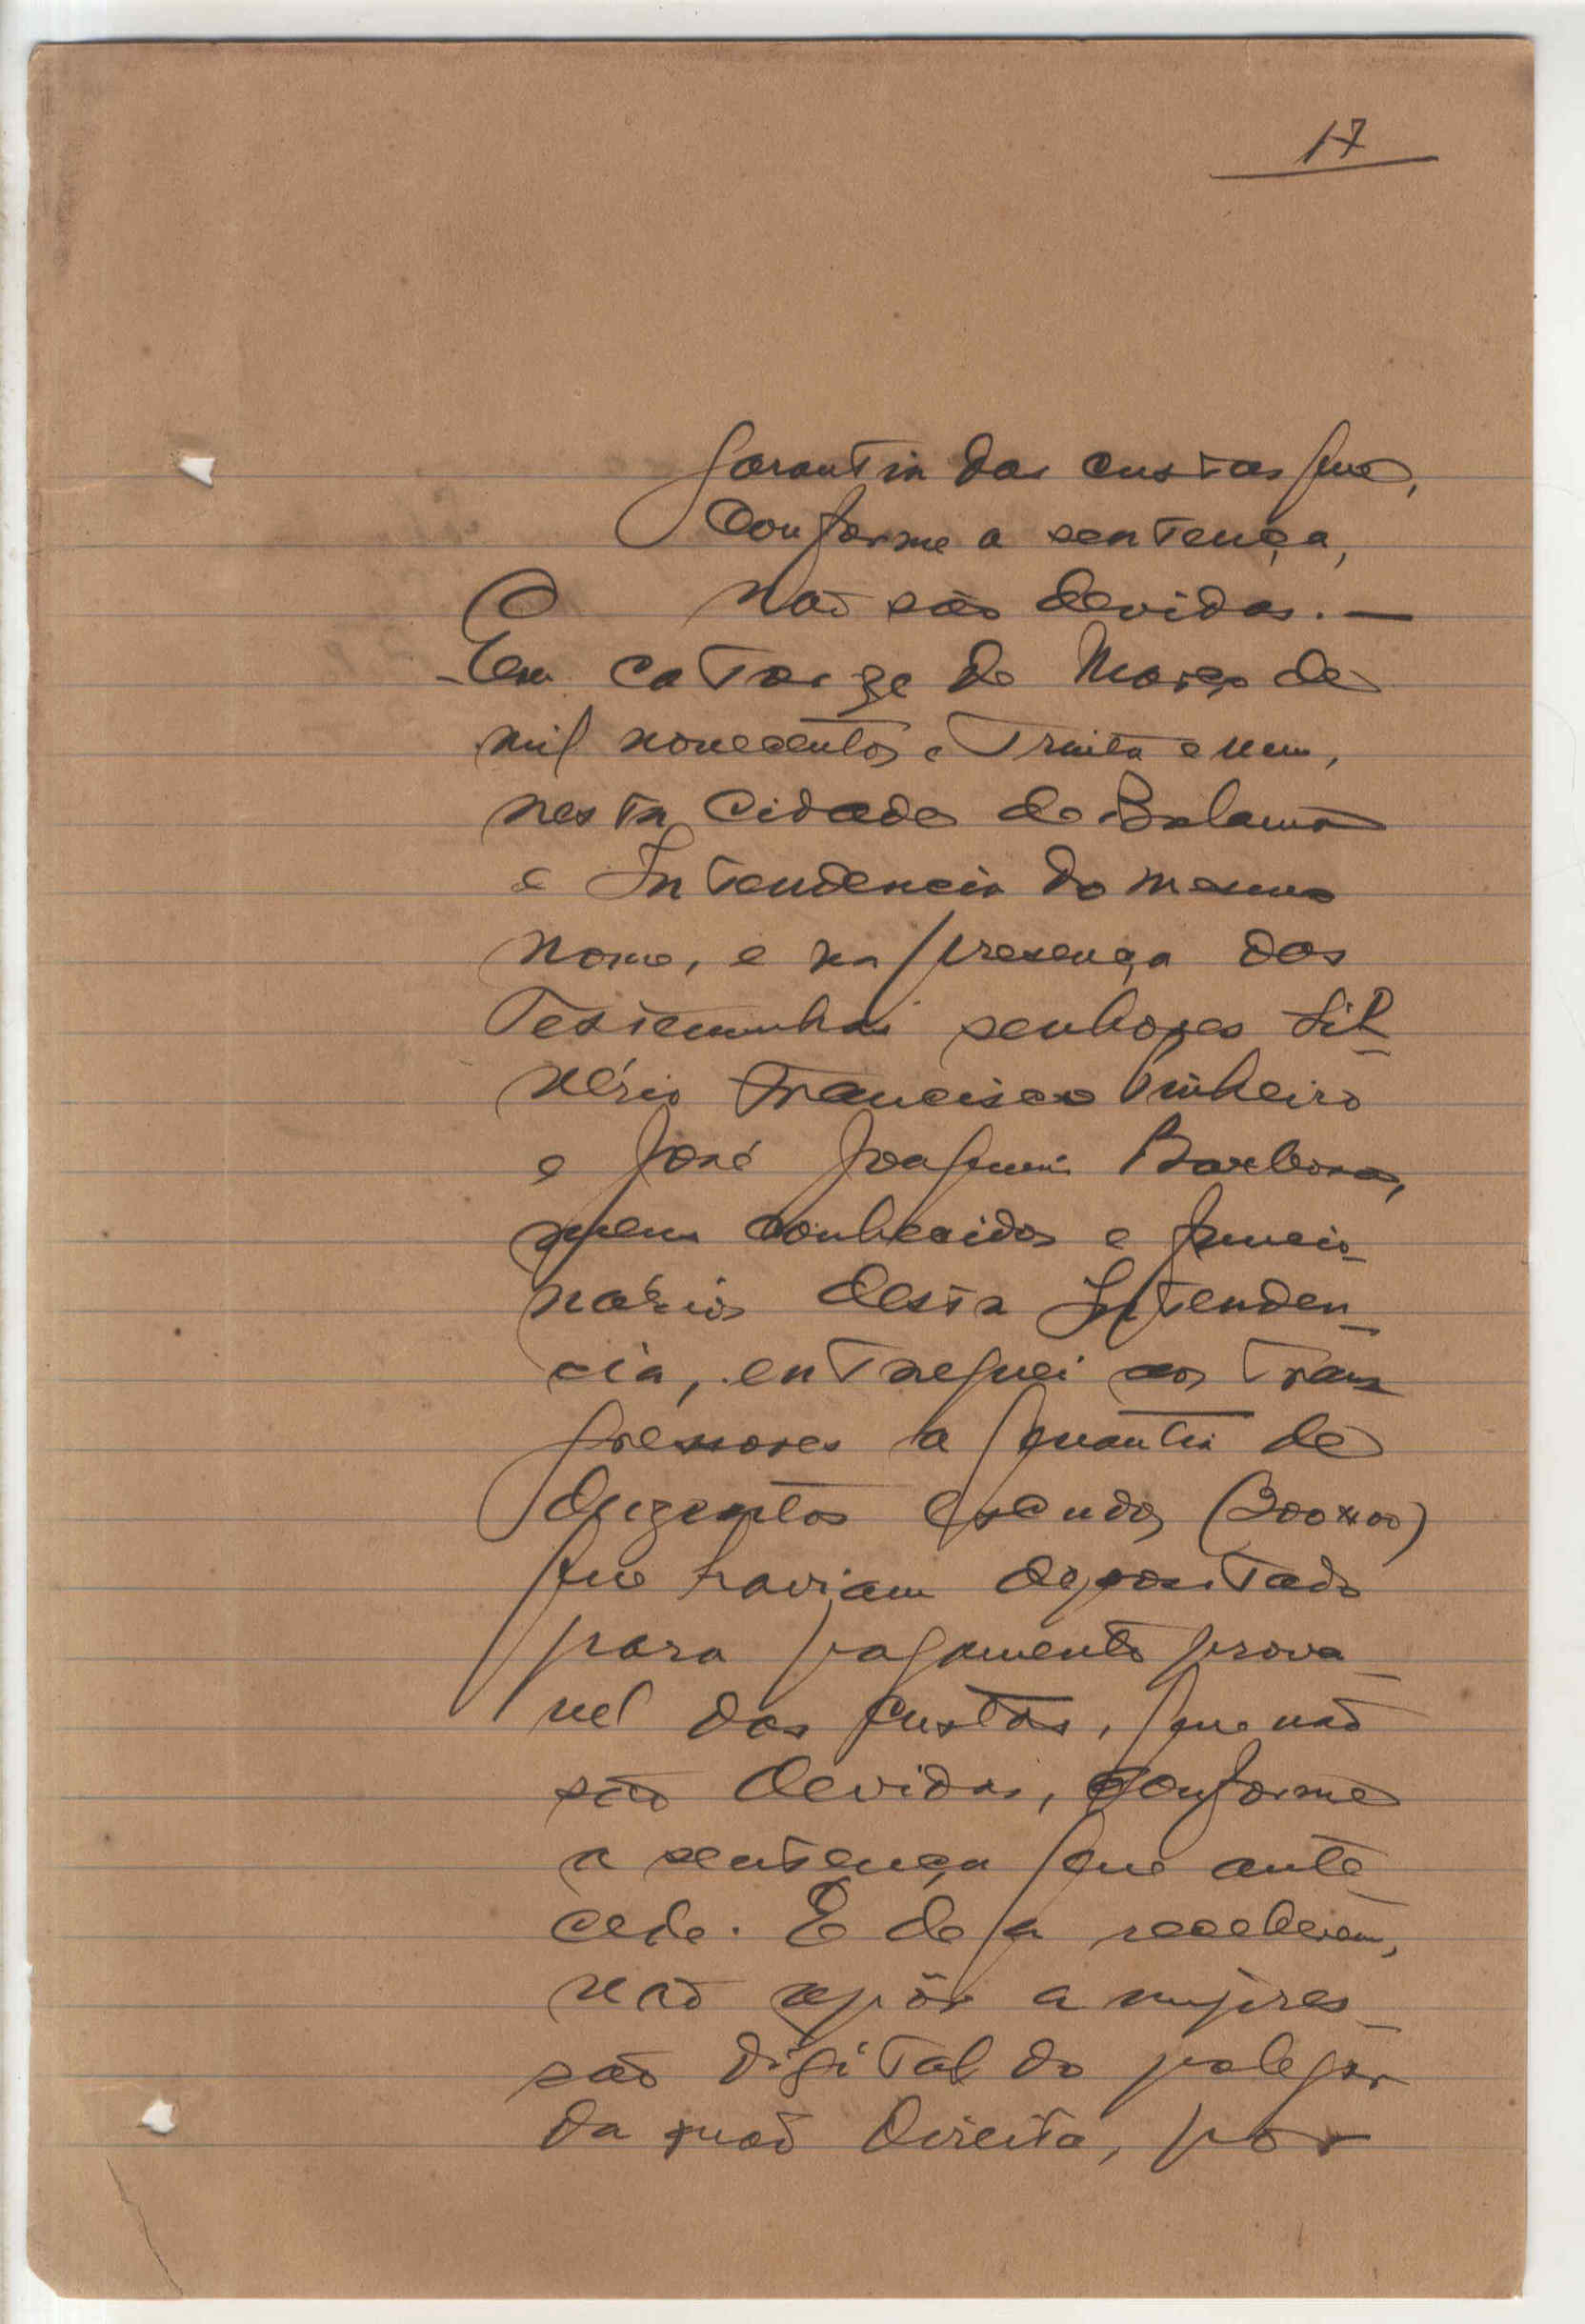 17
garantia das custas que,
conforme a sentença,
não são devidas. —
Em catorze de Março de
mil novecentos e trinta e um,
nesta cidade de Bolama
e Intendencia do mesmo
nome, e na presença das
testemunhas senhores Sil-
vério Francisco Pinheiro
e José Joaquim Barbosa,
meus conhecidos e funcio-
nários desta Intenden-
cia, entreguei aos trans
gressores a quantia de
duzentos escudos (200$00)
que haviam depositado
para pagamento prova-
vel das custas, que não
são devidas, conforme
a sentença que ante-
cede. E de a receberem,
vão apôr a impres-
são digital do polegar
da mão direita, por